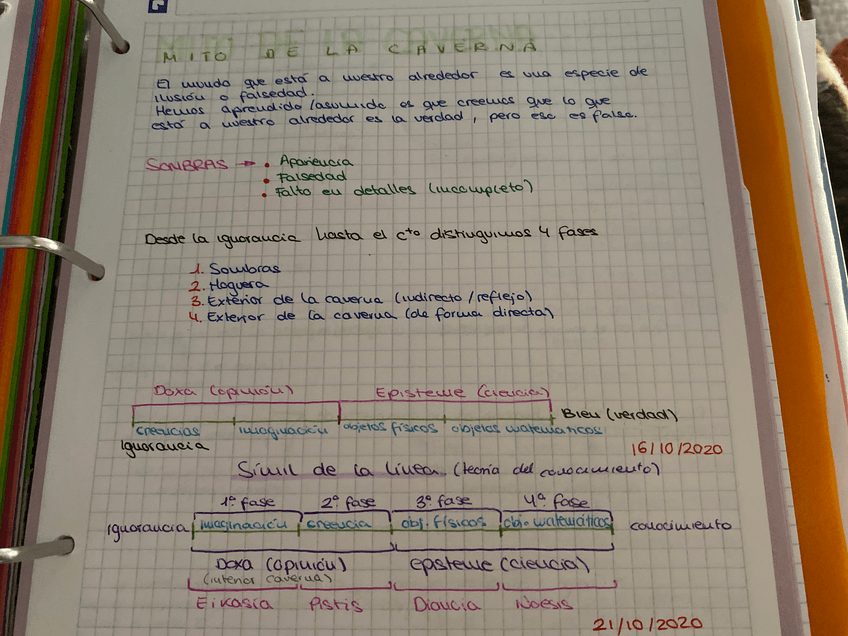 MITO DE LA CAVERNA
El mundo que está a nuestro alrededor es una especie de
ilusión o falsedad.
Hemos aprendido/asumido es que creemos que lo que
está a nuestro alrededor es la verdad, pero eso es falso.
SOMBRAS → • Apariencia
• Falsedad
• Falto en detalles (incompleto)
Desde la ignorancia hasta el cto distinguimos 4 fases
1. Sombras
2. Hoguera
3. Exterior de la caverna (indirecto/reflejo)
4. Exterior de la caverna (de forma directa)
Doxa (opinión) Episteme (ciencia)
Bien (verdad)
creencias imaginación objetos físicos objetos matemáticos
Ignorancia
16/10/2020
Símil de la línea (teoría del conocimiento)
1ª fase 2ª fase 3ª fase 4ª fase
Ignorancia imaginación creencia obj. físicos obj. matemáticos conocimiento
Doxa (opinión) episteme (ciencia)
(interior caverna)
Eikasia Pistis Dianoia Noesis
21/10/2020